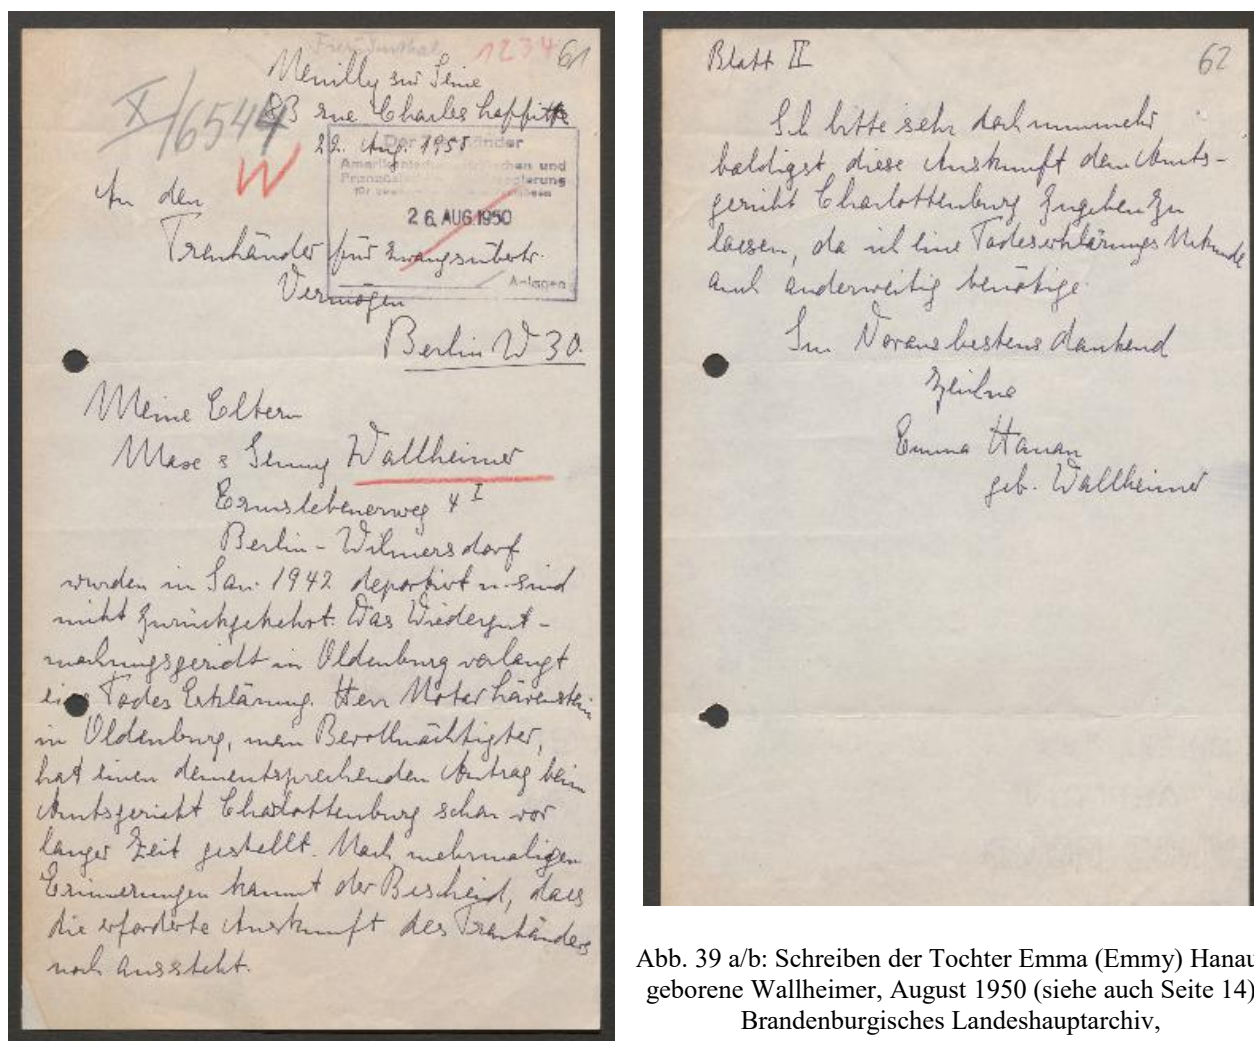 1234 61
Neuilly sur Seine
83 rue Charles Laffitte
22. Aug. 1950
X/6544
W
26. AUG 1950
Anlagen
An den
Treuhänder für Zwangsübertr.
Vermögen
Berlin W 30.
Meine Eltern
Max & Jenny Wallheimer
Ermslebenerweg 4 I
Berlin-Wilmersdorf
wurden in Jan. 1942 deportirt u. sind
nicht zurückgekehrt. Das Wiedergut-
machungsgericht in Oldenburg verlangt
eine Todes Erklärung. Herr Notar Löwenstein
in Oldenburg, mein Bevollmächtigter,
hat einen dementsprechenden Antrag beim
Amtsgericht Charlottenburg schon vor
langer Zeit gestellt. Nach mehrmaligen
Erinnerungen kommt der Bescheid, dass
die erforderte Auskunft des Treuhänders
noch aussteht.
Blatt II 62
Ich bitte sehr doch nunmehr
baldigst diese Auskunft dem Amts-
gericht Charlottenburg zugehen zu
lassen, da ich eine Todeserklärungs Urkunde
auch anderweitig benötige.
Im Voraus bestens dankend
zeichne
Emma Hanau
geb. Wallheimer
Abb. 39 a/b: Schreiben der Tochter Emma (Emmy) Hanau
geborene Wallheimer, August 1950 (siehe auch Seite 14)
Brandenburgisches Landeshauptarchiv,